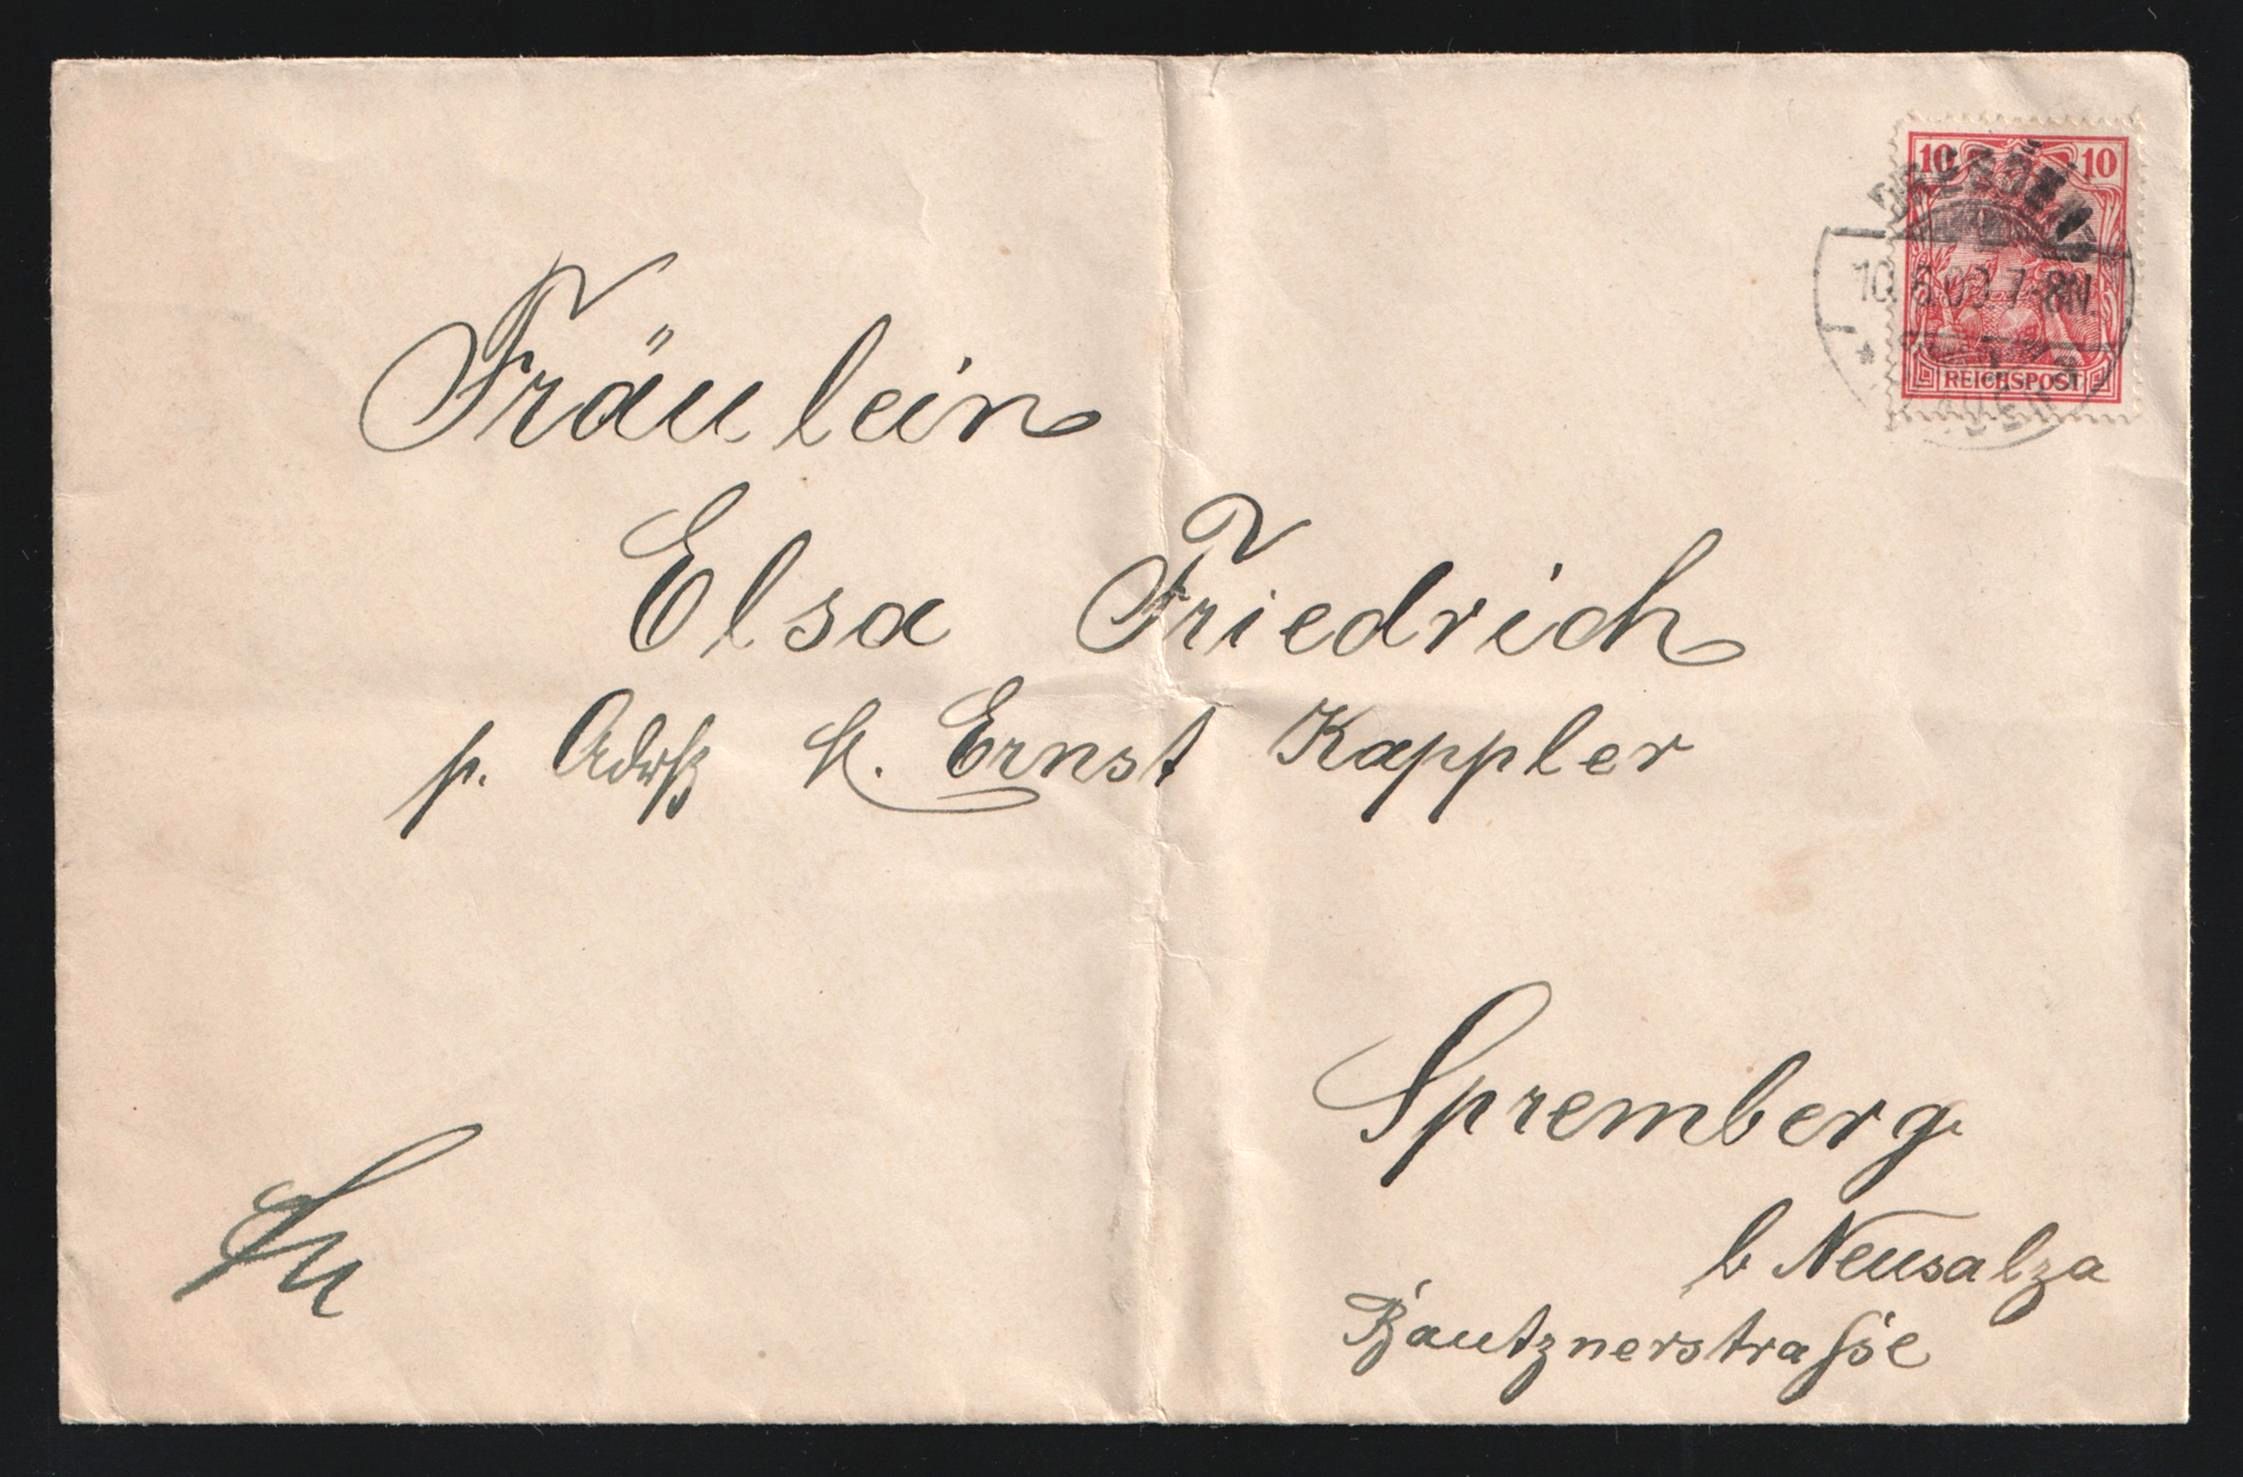 10 10
10.5.09.7-8N.
REICHSPOST
Fräulein
Elsa Friedrich
p. Adrß H. Ernst Kappler
Spremberg.
b Neusalza
Bautznerstraße